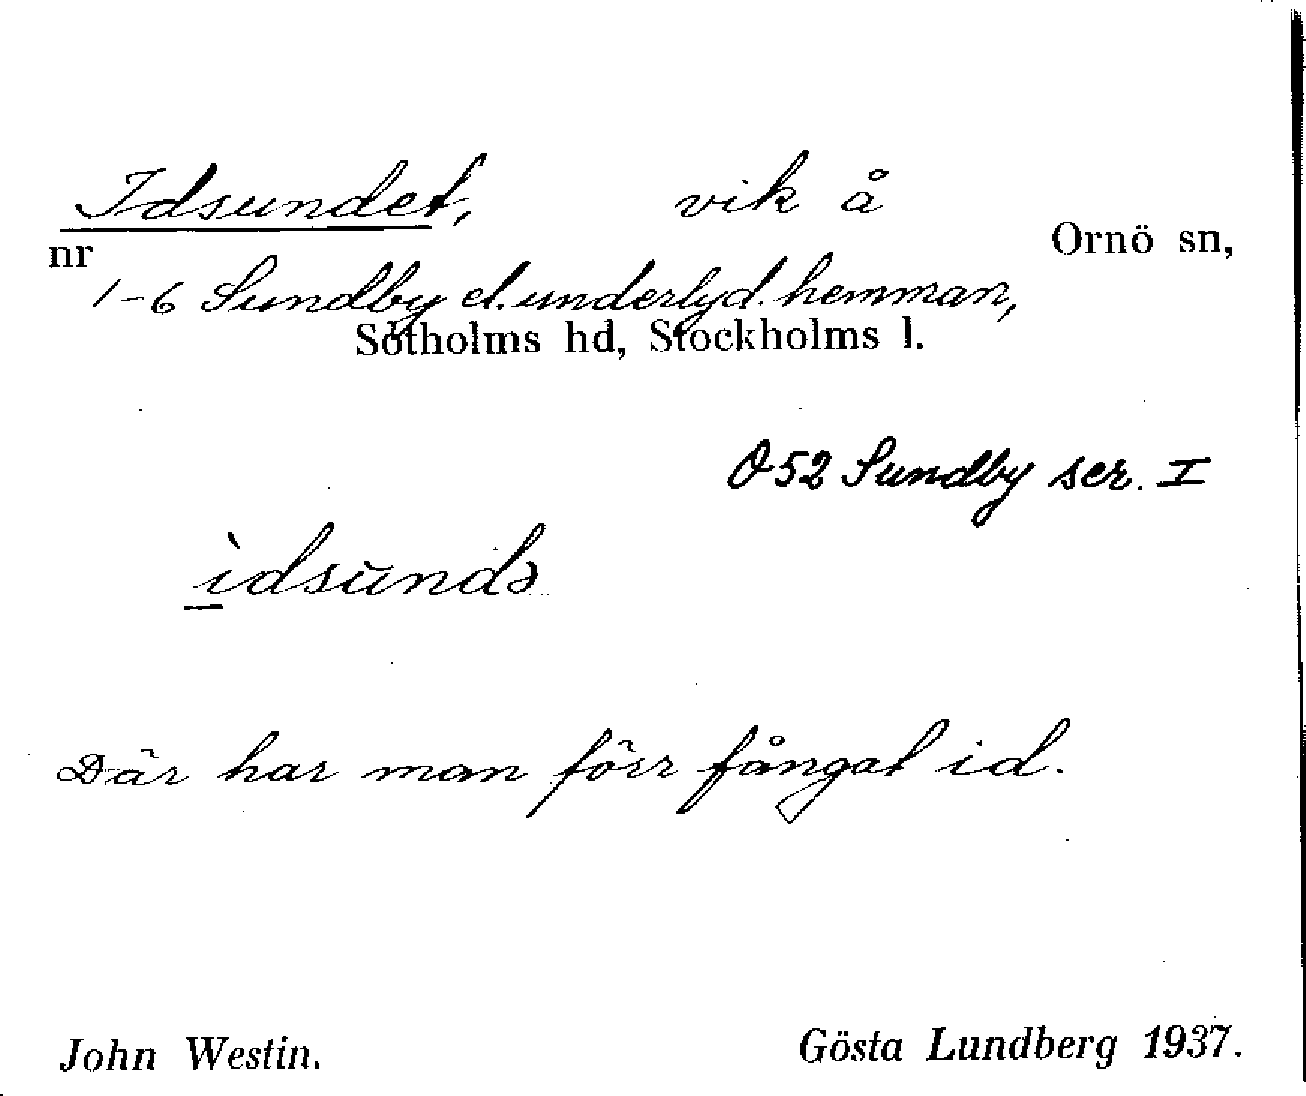 Idsundet, vik å
nr Ornö sn,
1-6 Sundby el. underlyd. hemman,
Sotholms hd, Stockholms l.
O 52 Sundby ser. I
ìdsundə
Där har man förr fångat id.
John Westin. Gösta Lundberg 1937.